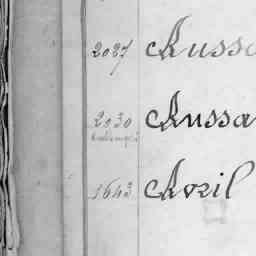 2027 Aussa
2030 Aussa
1643 Avril